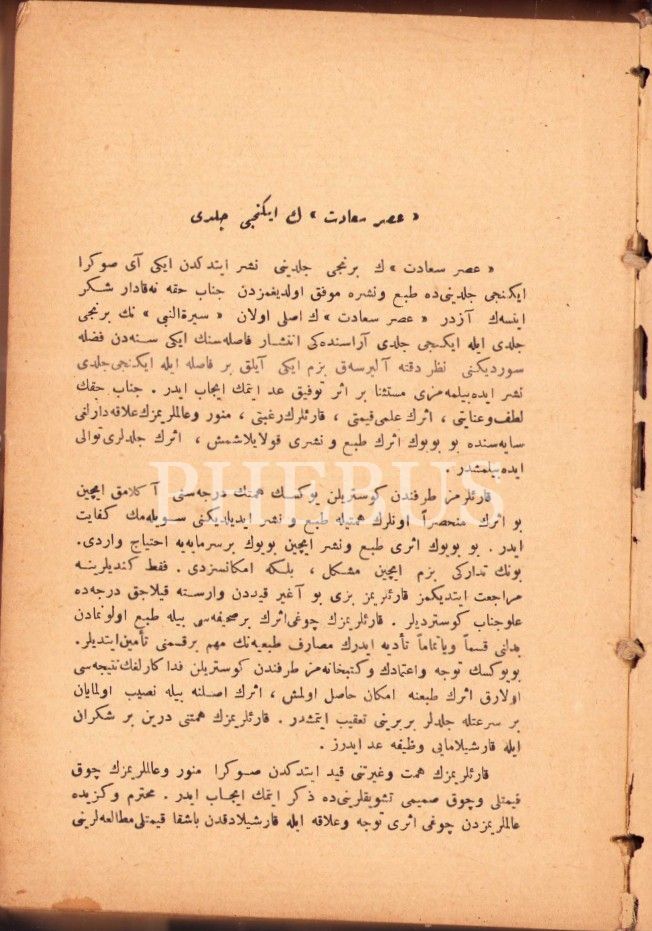 « عصر سعادت » ك ايكنجى جلدى
« عصر سعادت » ك برنجى جلدينى نشر ايتدكدن ايكى آى صوكرا
ايكنجى جلدينى ده طبع ونشره موفق اولديغمزدن جناب حقه نه قادار شكر
ايتسه ك آزدر « عصر سعادت » ك اصلى اولان « سيرة النبى » نك برنجى
جلدى ايله ايكنجى جلدى آراسنده كى انتشار فاصله سنك ايكى سنه دن فضله
سورديكنى نظر دقته آليرسه ق بزم ايكى آيلق بر فاصله ايله ايكنجى جلدى
نشر ايده بيلمه مزى مستثنا بر اثر توفيق عد ايتمك ايجاب ايدر . جناب حقك
لطف وعنايتى ، اثرك علمى قيمتى ، قارئلرك رغبتى ، منور وعالملريمزك علاقه دارلغى
سايه سنده بو بويوك اثرك طبع و نشرى قولايلاشمش ، اثرك جلدلرى توالى
ايده بيلمشدر .
PHEBUS
قارئلرمز طرفندن كوستريلن يوكسك همتك درجه سنى آكلامق ايچين
بو اثرك منحصراً اونلرك همتيله طبع و نشر ايديلديكنى سويله مك كفايت
ايدر . بو بويوك اثرى طبع ونشر ايچين بويوك برسرمايه يه احتياج واردى .
بونك تداركى بزم ايچين مشكل ، بلكه امكانسزدى . فقط كنديلرينه
مراجعت ايتديكمز قارئلريمز بزى بو آغير قيددن وارسته قيلاجق درجه ده
علوجناب كوسترديلر . قارئلريمزك چوغى اثرك برصحيفه سى بيله طبع اولونمادن
بدلنى قسماً وياتماماً تأديه ايدرك مصارف طبعيه نك مهم برقسمنى تأمين ايتديلر.
بويوكسك توجه واعتمادك وكتبخانه مز طرفندن كوستريلن فداكارلغك نتيجه سى
اولارق اثرك طبعنه امكان حاصل اولمش ، اثرك اصلنه بيله نصيب اولمايان
بر سرعتله جلدلر بربرينى تعقيب ايتمشدر . قارئلريمزك همتنى درين بر شكران
ايله قارشيلامايى وظيفه عد ايدرز .
قارئلريمزك همت وغيرتنى قيد ايتدكدن صوكرا منور وعالملريمزك چوق
قيمتلى وچوق صميمى تشويقلرينى ده ذكر ايتمك ايجاب ايدر . محترم وكزيده
عالملريمزدن چوغى اثرى توجه وعلاقه ايله قارشيلادقدن باشقا قيمتلى مطالعه لرينى